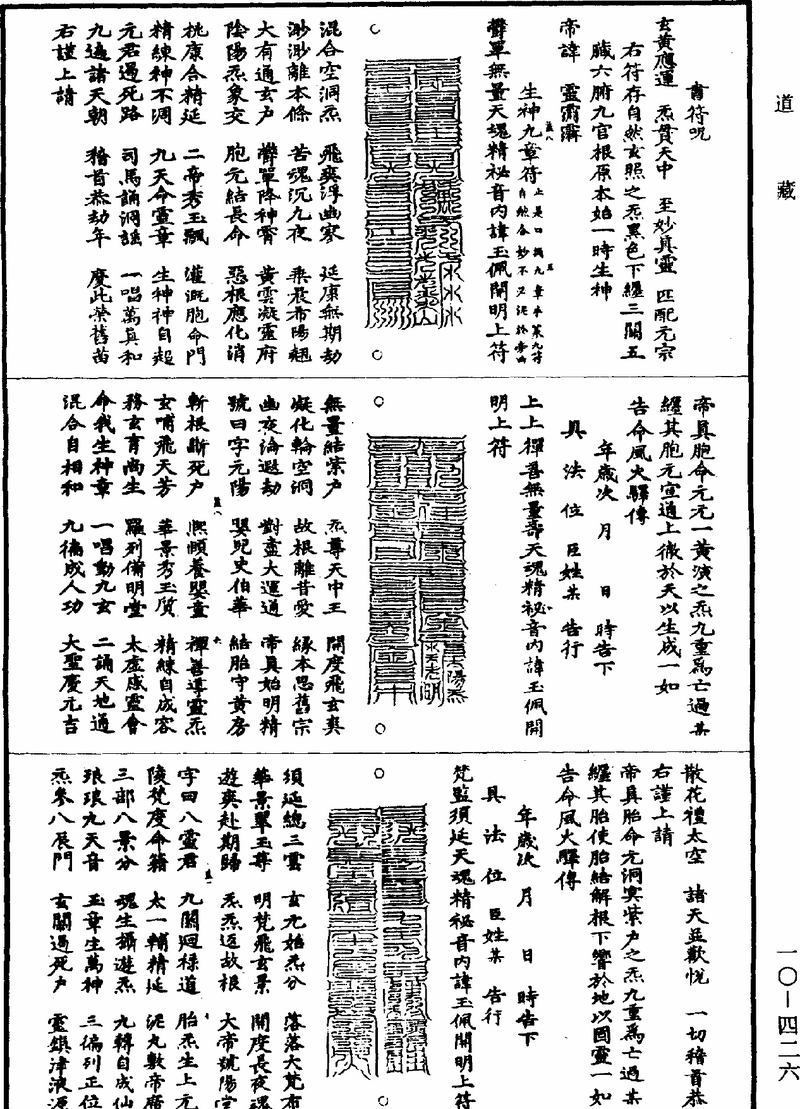 道藏
書符呪
玄黃應運　炁貫天中　至妙真靈　匹配元宗
右符存自然玄照之炁黑色下纏三關五
臟六腑九宮根原本始一時生神
帝諱　靈
生神九章符
鬱單無量天魂精祕音內諱玉佩開明上符
混合空洞炁　飛爽浮幽寥　延康無期劫
渺渺離本條　苦魂沉九夜　乘晨希陽翹
大有通玄戶　鬱單降神霄　黃雲凝靈府
陰陽炁象交　胞元結長命　惡根應化消
桃康合精延　二帝秀玉飄　灌溉胞命門
精練神不凋　九天命靈章　生神神自超
元君遏死路　司馬誦洞謠　一唱萬真和
九遍諸天朝　稽首恭劫年　慶此榮舊苗
右謹上請
帝真胞命元元一黃演之炁九重為亡過某
纏其胞元宣通上徹於天以生成一如
告命風火驛傳
年歲次　月　日　時告下
具　法　位　臣姓某　告行
上上禪善無量壽天魂精祕音內諱玉佩開
明上符
無量結紫戶　炁尊天中王　開度飛玄爽
凝化輪空洞　故根離昔愛　緣本思舊宗
幽夜淪遐劫　對盡大運通　帝真始明精
號曰字元陽　嬰兒史伯華　結胎守黃房
斬根斷死戶　熙頤養嬰童　禪善導靈炁
玄哺飛天芳　華景秀玉質　精練自成容
務玄育尚生　羅列備明堂　太虛感靈會
命我生神章　一唱動九玄　二誦天地通
混合自相和　九徧成人功　大聖慶元吉
散花禮太空　諸天並歡悅　一切稽首恭
右謹上請
帝真胎命元洞冥紫戶之炁九重為亡過某
纏其胎使胎結解根下響於地以固靈一如
告命風火驛傳
年歲次　月　日　時告下
具　法　位　臣姓某　告行
梵監須延天魂精祕音內諱玉佩開明上符
須延總三雲　玄元始炁分　落落大梵布
華景翠玉尊　明梵飛玄景　開度長夜魂
遊爽赴期歸　炁炁返故根　大帝號陽堂
字曰八靈君　九關迴祿道　胎炁生上元
陵梵度命籍　太一輔精延　泥丸敷帝席
三部八景分　魂生攝遊炁　九轉自成仙
琅琅九天音　玉章生萬神　三徧列正位
炁參八辰門　玄關遏死戶　靈鎮津液源
一〇—四二六